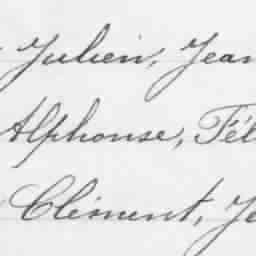 Julien, Jean
Alphonse, Fél
Clément, Je